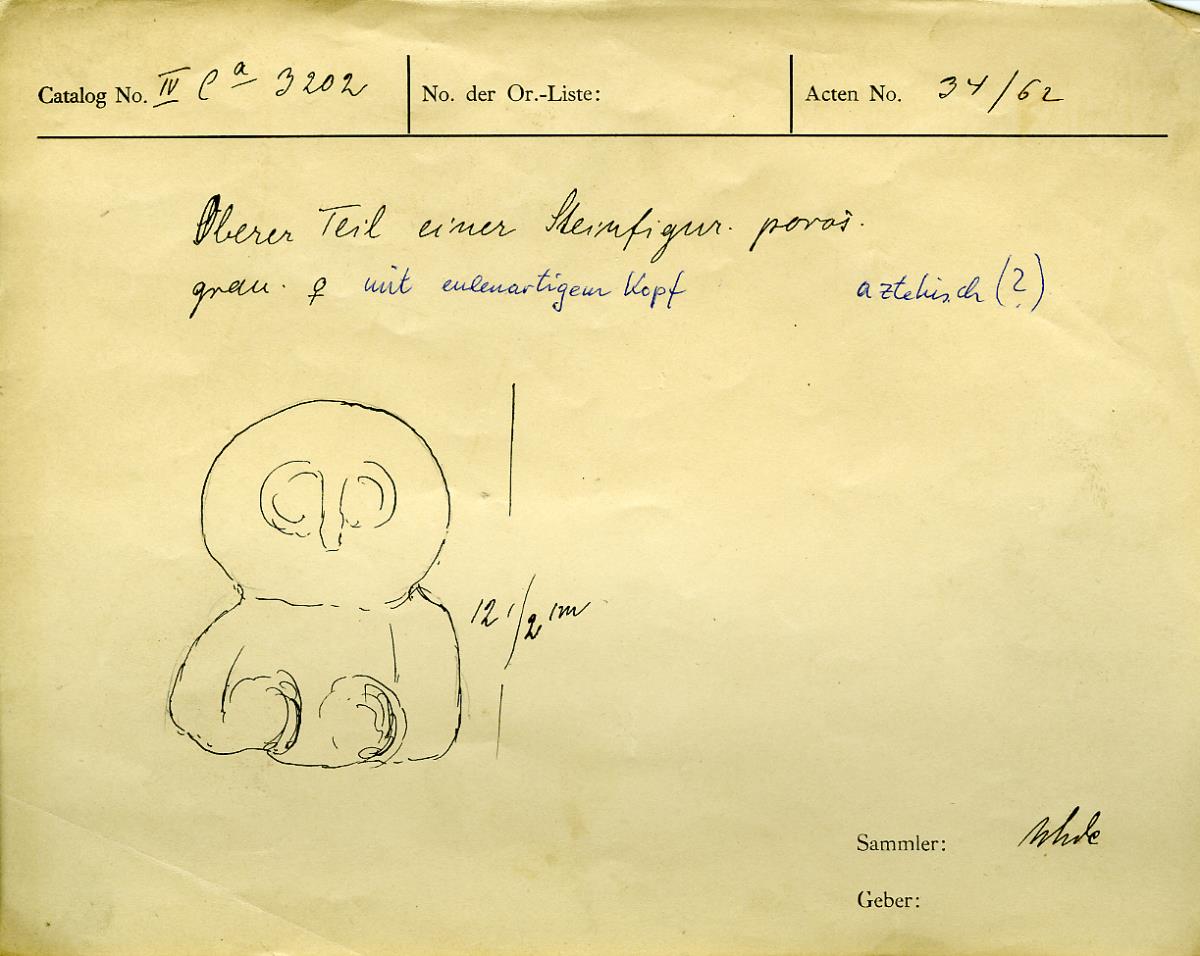 Catalog No. IV Ca 3202 No. der Or.-Liste: Acten No. 34/62
Oberer Teil einer Steinfigur. porös.
grau. ♀ mit eulenartigem Kopf aztekisch (?)
12 1/2 cm
Sammler: Uhde
Geber: